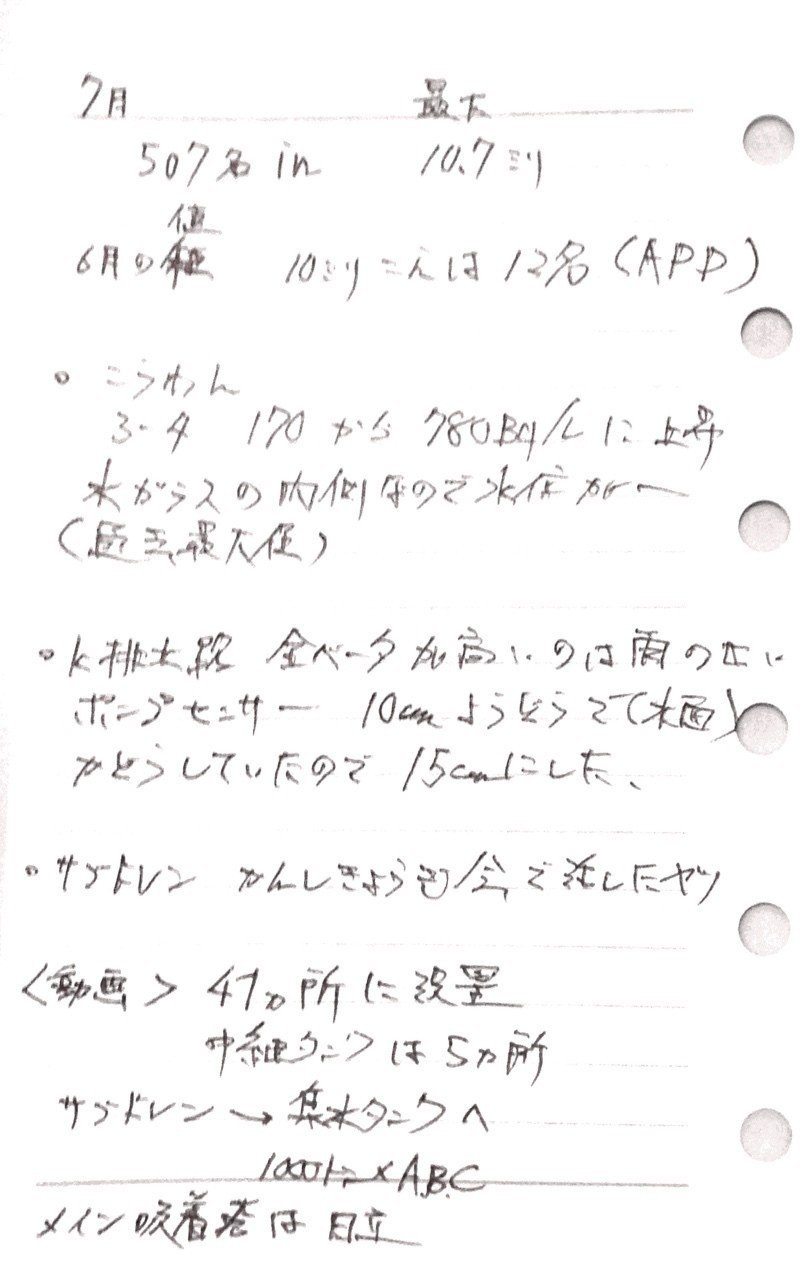 7月 最大
507名 in 10.7ミリ
値
6月の 10ミリこえは12名(APD)
・こうわん
3-4 170から780Bq/Lに上昇
水ガラスの内側なので水位がー
(過去最大値)
・K排水路 全ベータが高いのは雨のせい
ポンプセンサー 10cm ようどうで(水面)
かどうしていたので 15cmにした、
・サブドレン かんしきょうぎ会で話したヤツ
<動画> 41ヵ所に設置
中継タンクは5ヵ所
サブドレン→集水タンクへ
1000トン×A.B.C
メイン吸着塔は日立